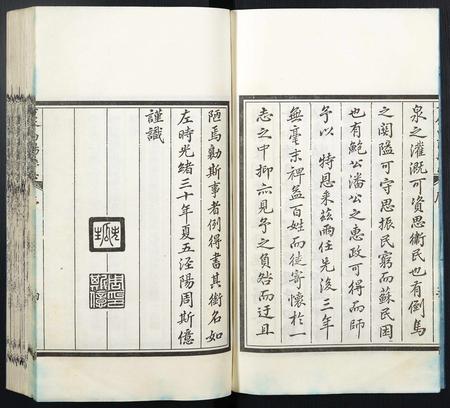 泉之灌溉可資思衛民也有倒馬
之関隘可守思振民窮而蘇民困
也有鮑公潘公之惠政可得而師
予以特恩来兹兩任先後三年
無毫末裨益百姓而徒寄懷於一
志之中抑亦見予之負咎而迂且
陋焉勷斯事者例得書其銜名如
左時光緒三十年夏五涇陽周斯億
謹識
周斯億印